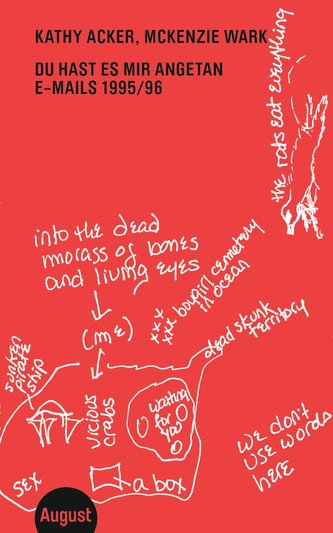 KATHY ACKER, MCKENZIE WARK
DU HAST ES MIR ANGETAN
E-MAILS 1995/96
the rats eat everything
into the dead
morass of bones
and living eyes
(ME)
xxx bowgirl cemetery
xxx in ocean
dead skunk
territory
sunken
pirate
ship
vicious
crabs
waiting
for
you
we don't
use words
here
SEX
a box
August